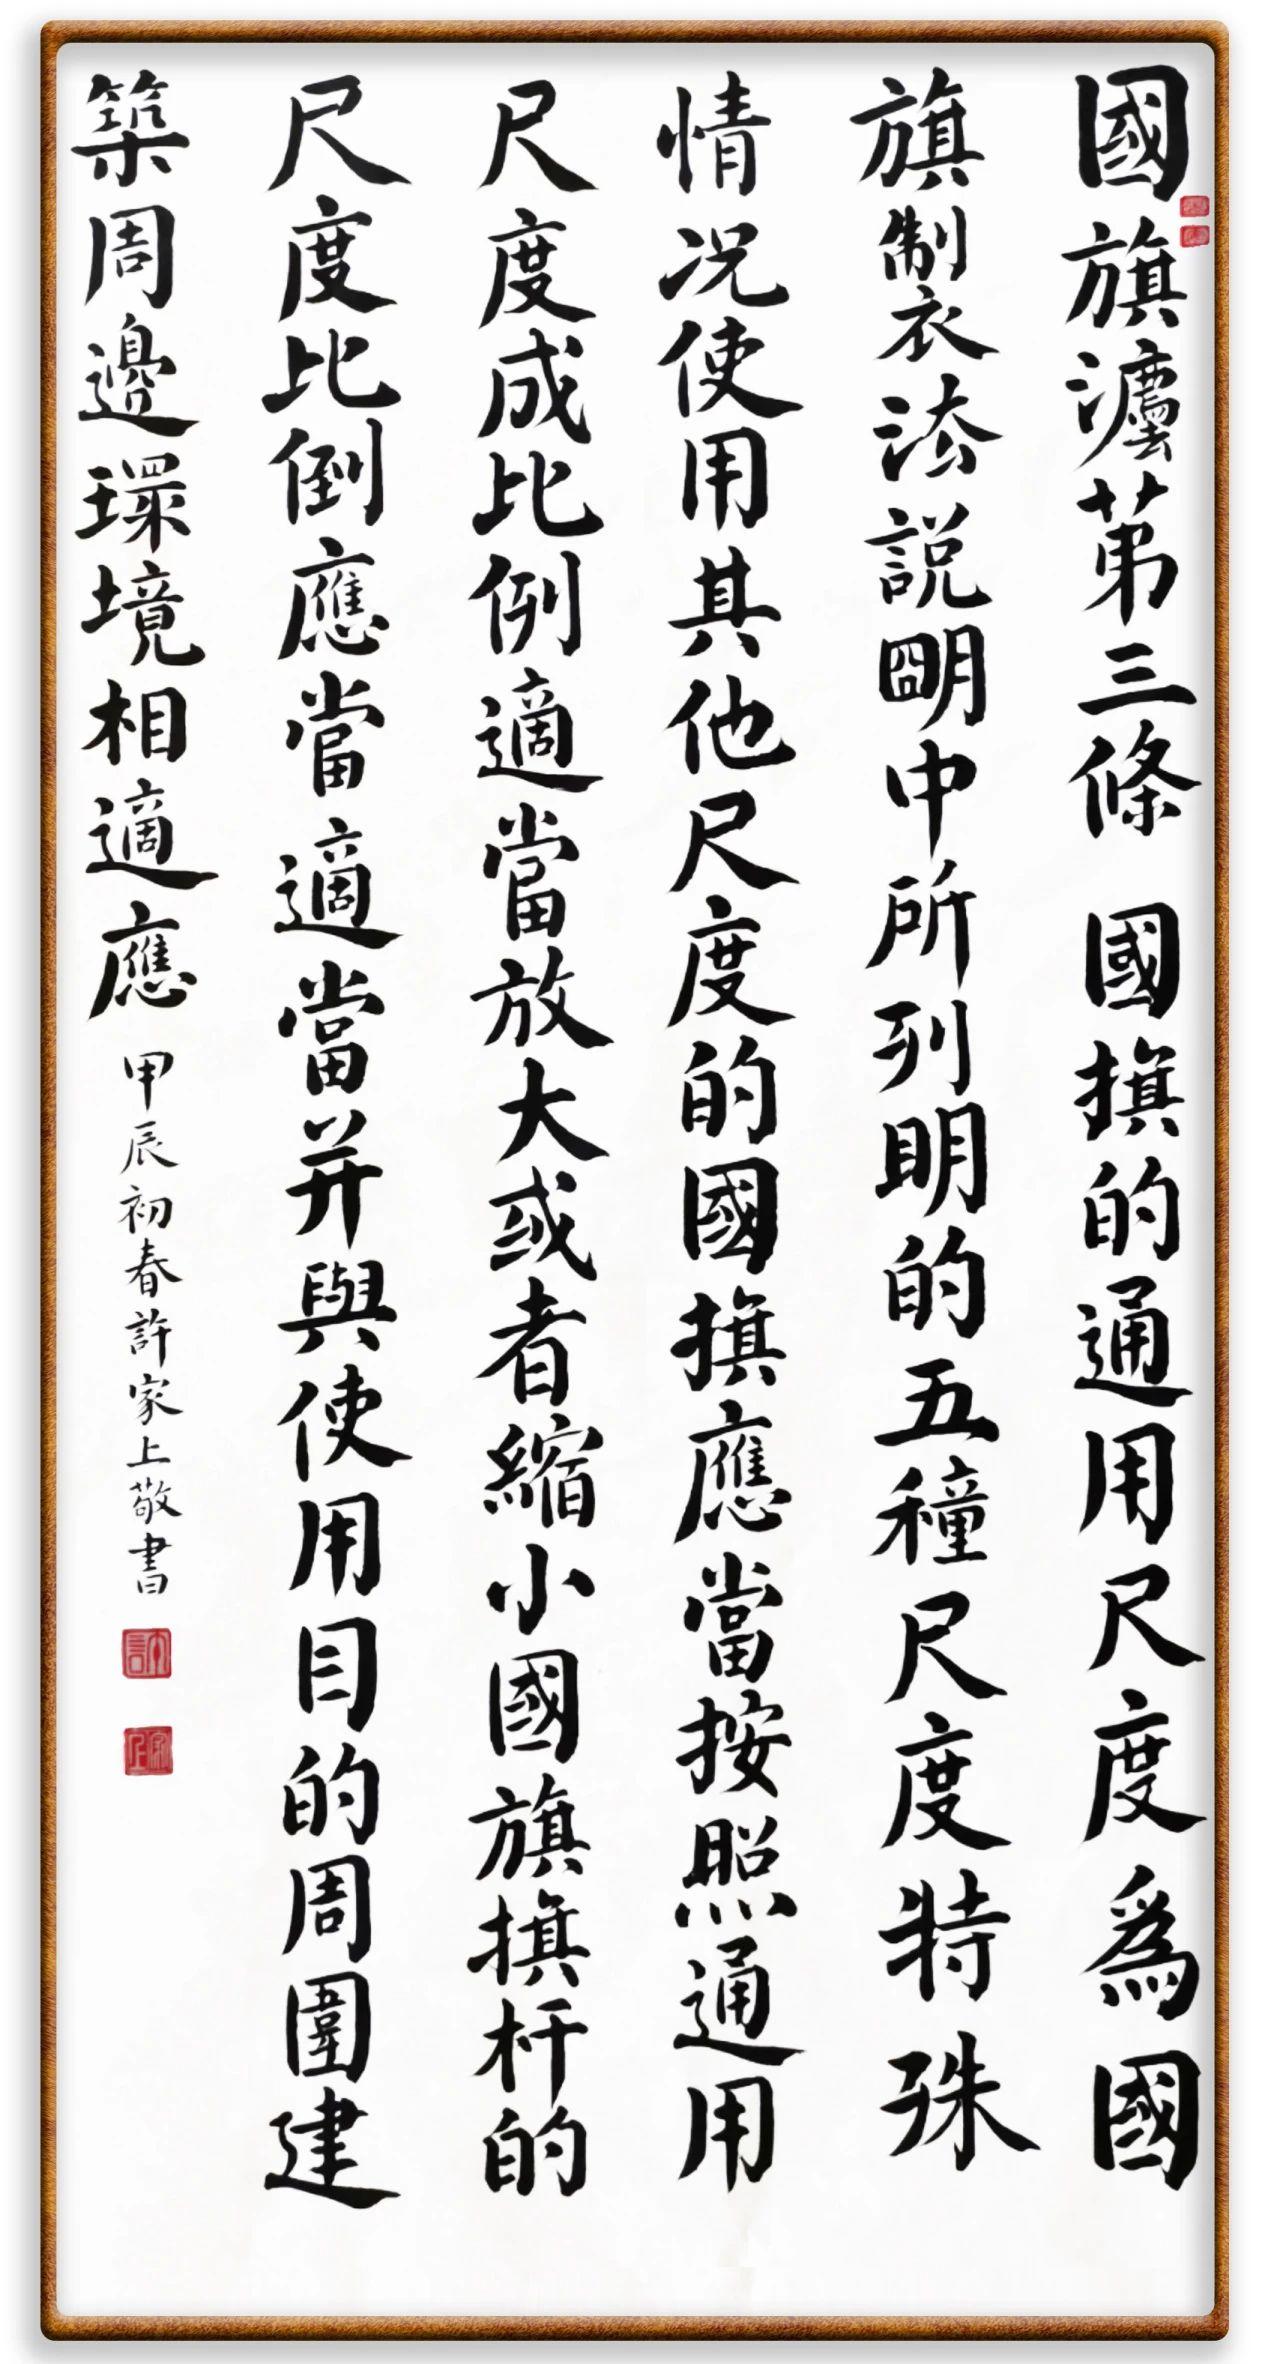 國旗灋苐三條 國旗的通用尺度為國
旗製法說朙中所列明的五種尺度特殊
情况使用其他尺度的國旗應當按照通用
尺度成比例適當放大或者縮小國旗旗杆的
尺度比倒應當適當并與使用目的周圍建
築周邊環境相適應 甲辰初春許家上敬書